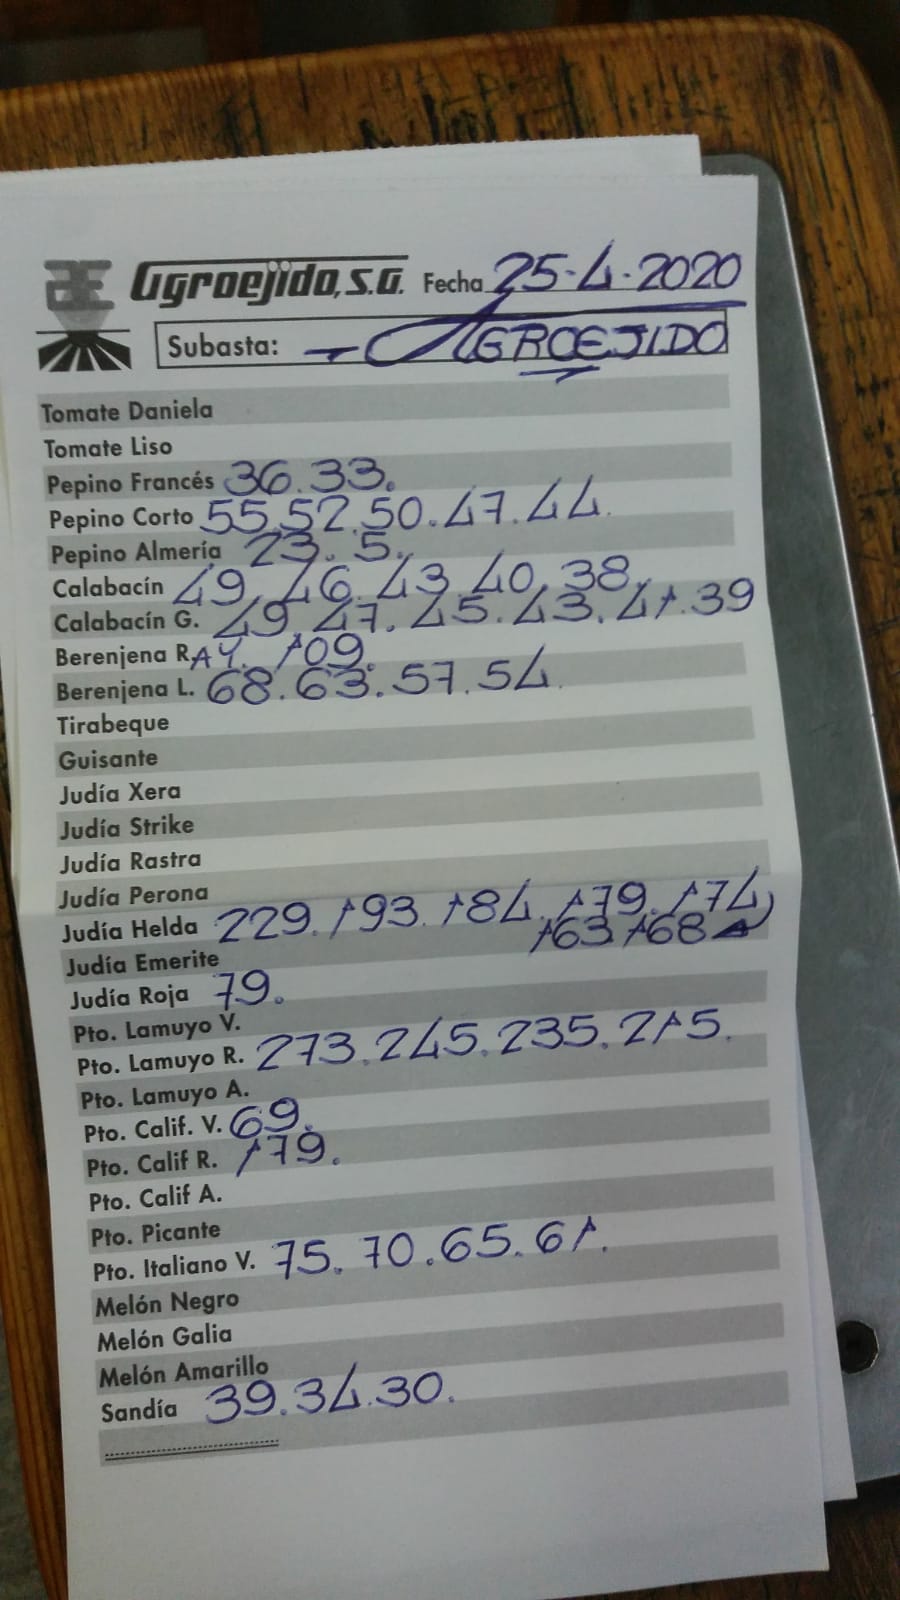 Agroejido, S.A. Fecha 25-4-2020
Subasta: AGROEJIDO
Tomate Daniela
Tomate Liso
Pepino Francés 36.33.
Pepino Corto 55.52.50.47.44.
Pepino Almería 23. 5.
Calabacín 49.46.43.40.38.
Calabacín G. 49.47.45.43.41.39
Berenjena RAY. 109.
Berenjena L. 68.63.57.54.
Tirabeque
Guisante
Judía Xera
Judía Strike
Judía Rastra
Judía Perona
Judía Helda 229.193.184.179.174
163.168
Judía Emerite
Judía Roja 79.
Pto. Lamuyo V.
Pto. Lamuyo R. 273.245.235.215.
Pto. Lamuyo A.
Pto. Calif. V. 69.
Pto. Calif R. 179.
Pto. Calif A.
Pto. Picante
Pto. Italiano V. 75.70.65.61.
Melón Negro
Melón Galia
Melón Amarillo
Sandía 39.34.30.